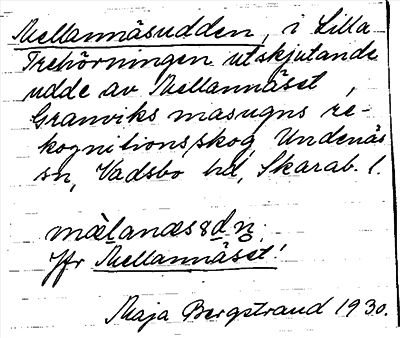 Mellannäsudden, i Lilla
Trehörningen utskjutande
udde av Mellannäset,
Granviks masugns re-
kognitionsskog, Undenäs
sn, Vadsbo hd, Skarab. l.
Jfr Mellannäset!
Maja Bergstrand 1930.